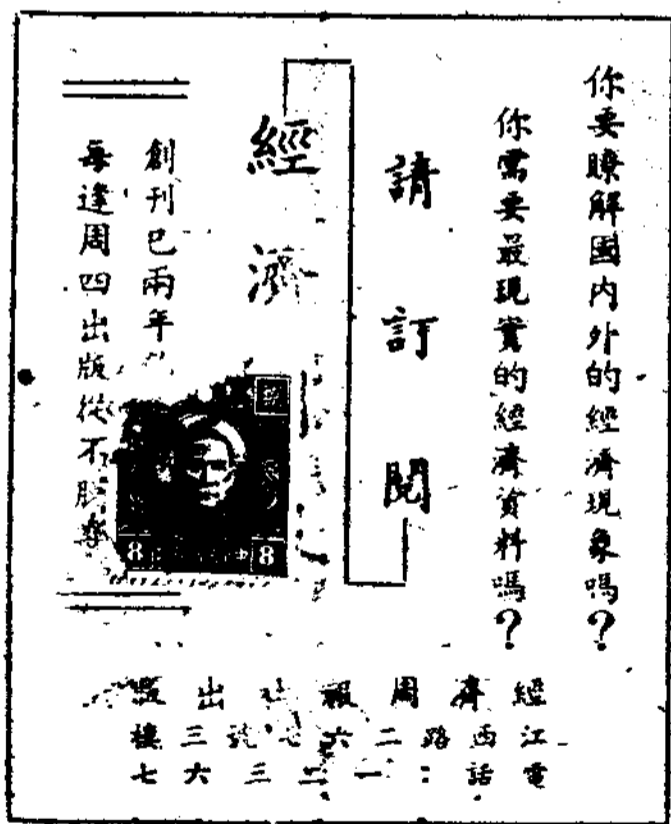 你要瞭解國內外的經濟現象嗎?
你需要最現實的經濟資料嗎?
請訂閱
經濟
創刊已兩年
每逢周四出版從不脫
8 8
經濟周報社出版
江西路二六七號三樓
電話:一二三六七